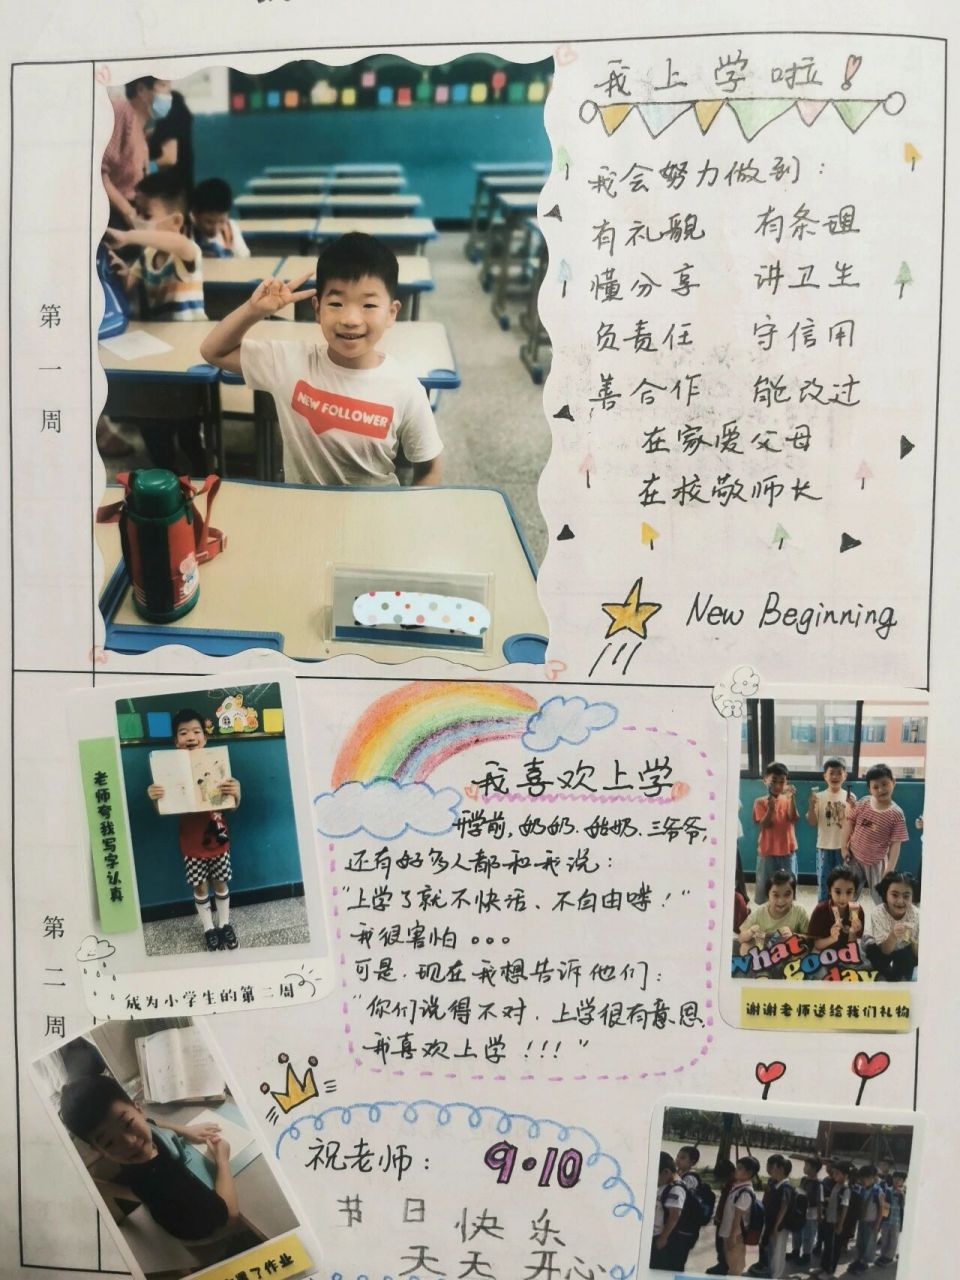 第一周
NEW FOLLOWER
我上学啦!
我会努力做到:
有礼貌 有条理
懂分享 讲卫生
负责任 守信用
善合作 能改过
在家爱父母
在校敬师长
New Beginning
第二周
老师夸我写字认真
成为小学生的第二周
我喜欢上学
开学前,奶奶、姑奶、三爷爷,
还有好多人都和我说:
"上学了就不快活、不自由喽!"
我很害怕。。。
可是,现在我想告诉他们:
"你们说得不对,上学很有意思
我喜欢上学!!!"
what a good day
谢谢老师送给我们礼物
祝老师:
9·10
节日快乐
天天开心
了作业